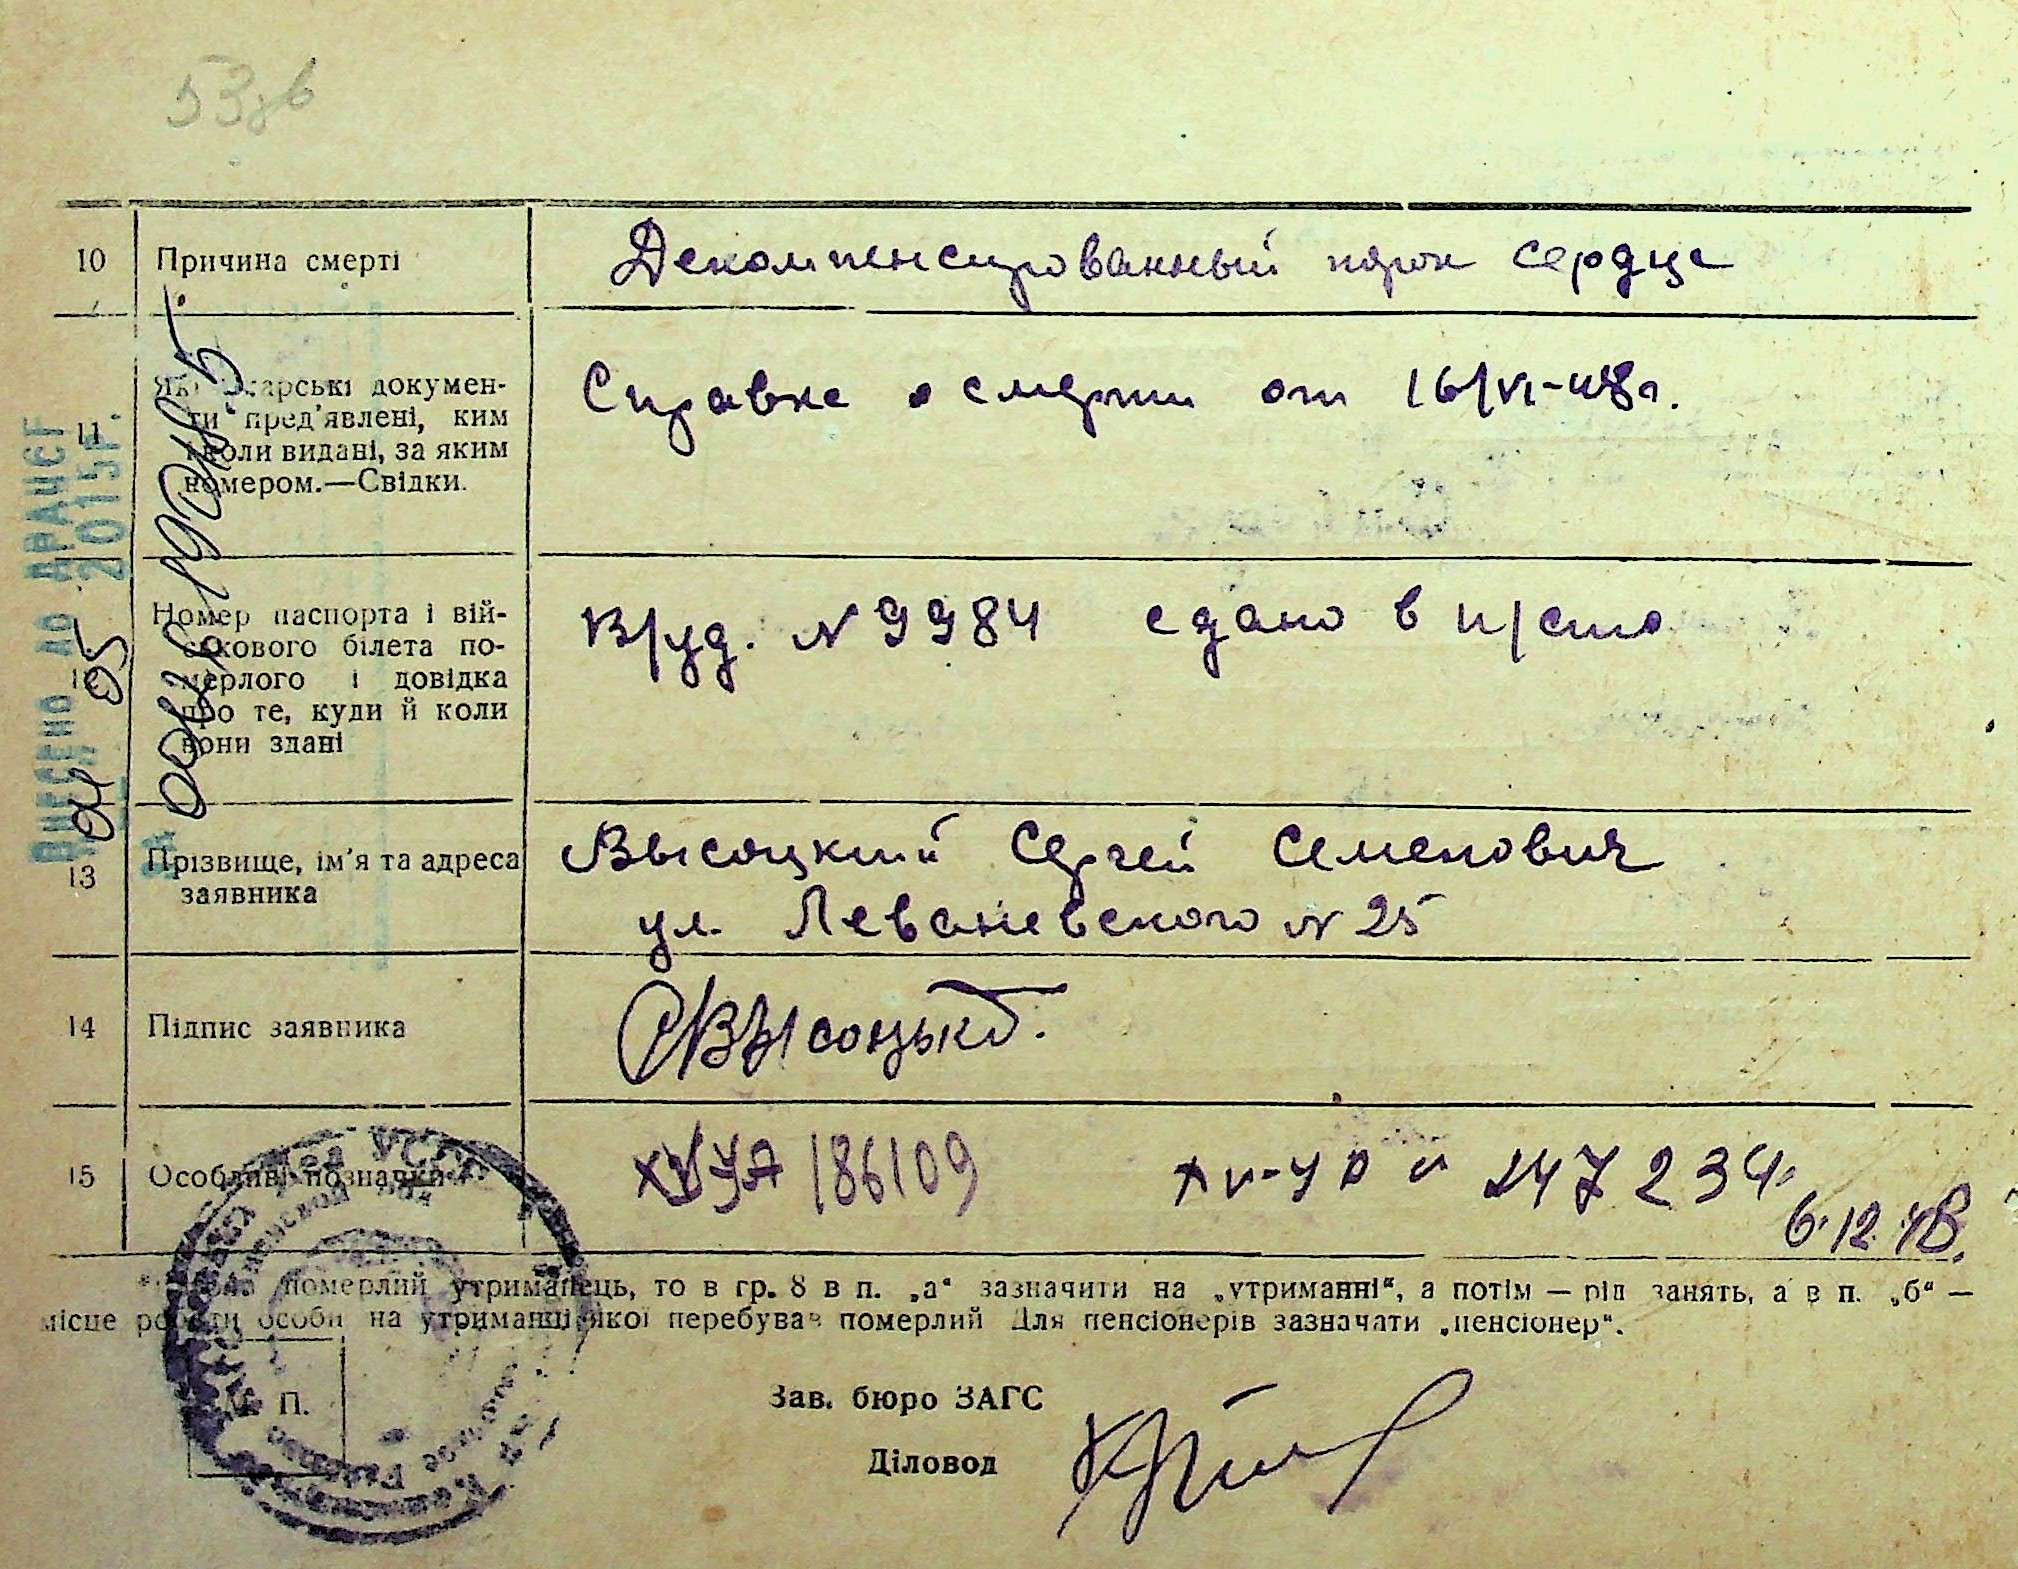 10 Причина смерті Декомпенсированный порок сердца
11 Які лікарські докумен-
ти пред'явлені, ким
і коли видані, за яким
номером.—Свідки.
Справка о смерти от 16/VI-48г.
Номер паспорта і вій-
ськового білета по-
мерлого і довідка
про те, куди й коли
вони здані
В/уд. N 9984 сдано в п/сто
ВНЕСЕНО ДО ДРАЦСГ
04 05 2015р.
13 Прізвище, ім'я та адреса
заявника
Высоцкий Сергей Семенович
ул. Леваневского N 25
14 Підпис заявника
15 Особливі позначки
186109
247234
6.12.48.
померлий утриманець, то в гр. 8 в п. „а“ зазначити на „утриманні“, а потім — рід занять, а в п. „б“ —
місце роботи особи на утриманні якої перебував померлий Для пенсіонерів зазначати „пенсіонер“.
М. П.
Зав. бюро ЗАГС
Діловод